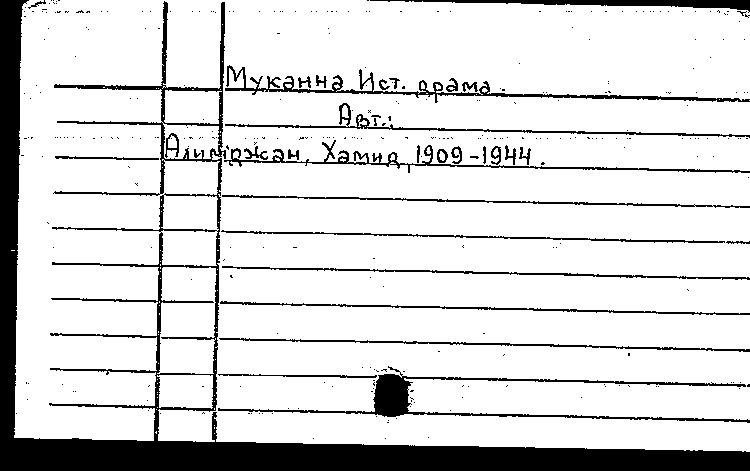 Муканна Ист. драма.
Авт.:
Алимджан, Хамид, 1909-1944.